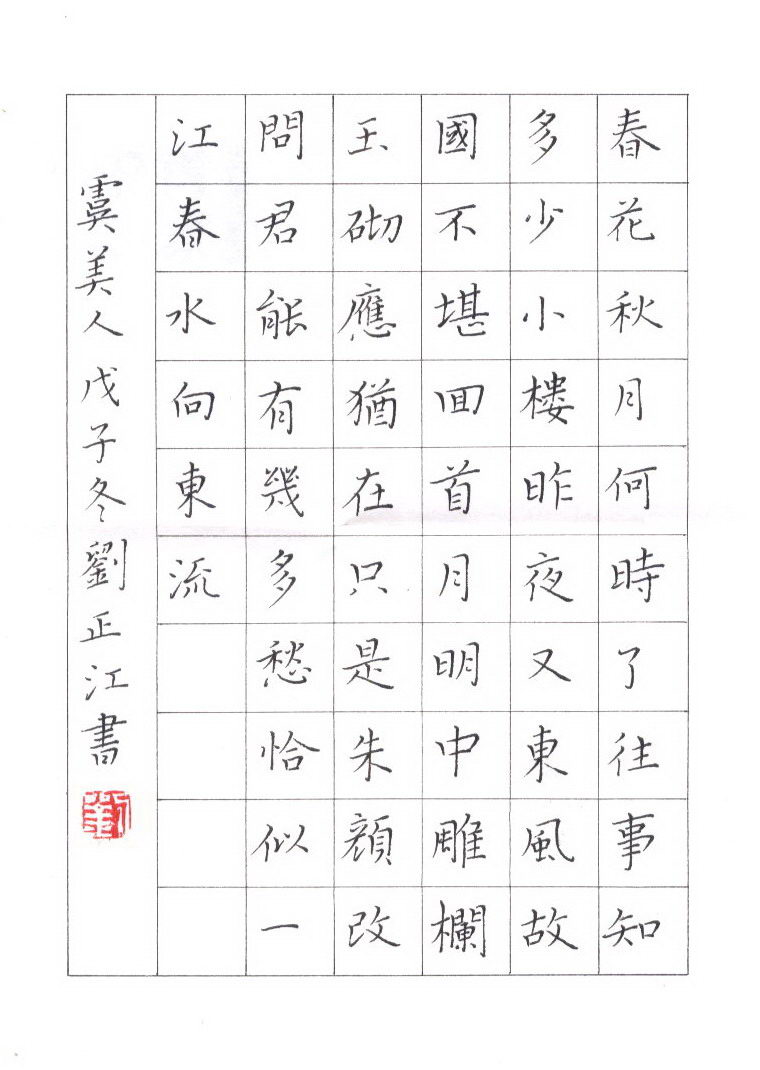 春花秋月何時了往事知
多少小樓昨夜又東風故
國不堪回首月明中雕欄
玉砌應猶在只是朱顏改
問君能有幾多愁恰似一
江春水向東流
虞美人戊子冬劉正江書
劉